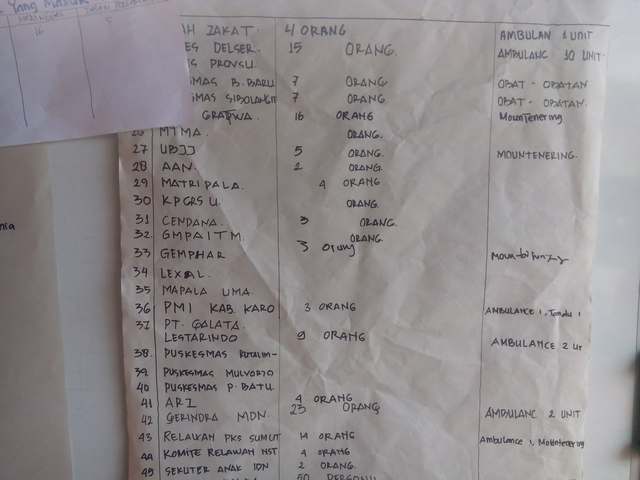 Yang Masuk
16 5
AH ZAKAT. 4 ORANG AMBULAN 1 UNIT
ES DELSER. 15 ORANG. AMBULANC 10 UNIT.
S PROVSU
MAS B. BARU 7 ORANG OBAT - OBATAN.
MAS SIBOLANGIT 7 ORANG OBAT - OBATAN.
16 ORANG MounTenering
26 MTMA. ORANG.
27 UBJJ 5 ORANG. MOUNTENERING.
28 AAN. 2 ORANG.
29 MATRIPALA. 4 ORANG
30 KPGRS U. ORANG.
31 CENDANA. 3 ORANG.
32. GMPAITM. ORANG.
33 GEMPHAR 3 Orang
34 LEXAL.
35 MAPALA UMA.
36 PMI KAB. KARO 3 ORANG AMBULANCE 1, Tandu 1
37 PT. GALATA
LESTARINDO 9 ORANG AMBULANCE 2 UT
38. PUSKESMAS
39 PUSKESMAS MULYOREJO
40 PUSKESMAS P. BATU
41 ARI 4 ORANG
42 GERINDRA MDN. 23 ORANG AMBULANC 2 UNIT
43 RELAWAN PKS SUMUT 14 ORANG Ambulance 1, Mountenering
44 KOMITE RELAWAN NST 4 ORANG
45 SEKUTER ANAK IDN 2 ORANG.
50 PERSONIL